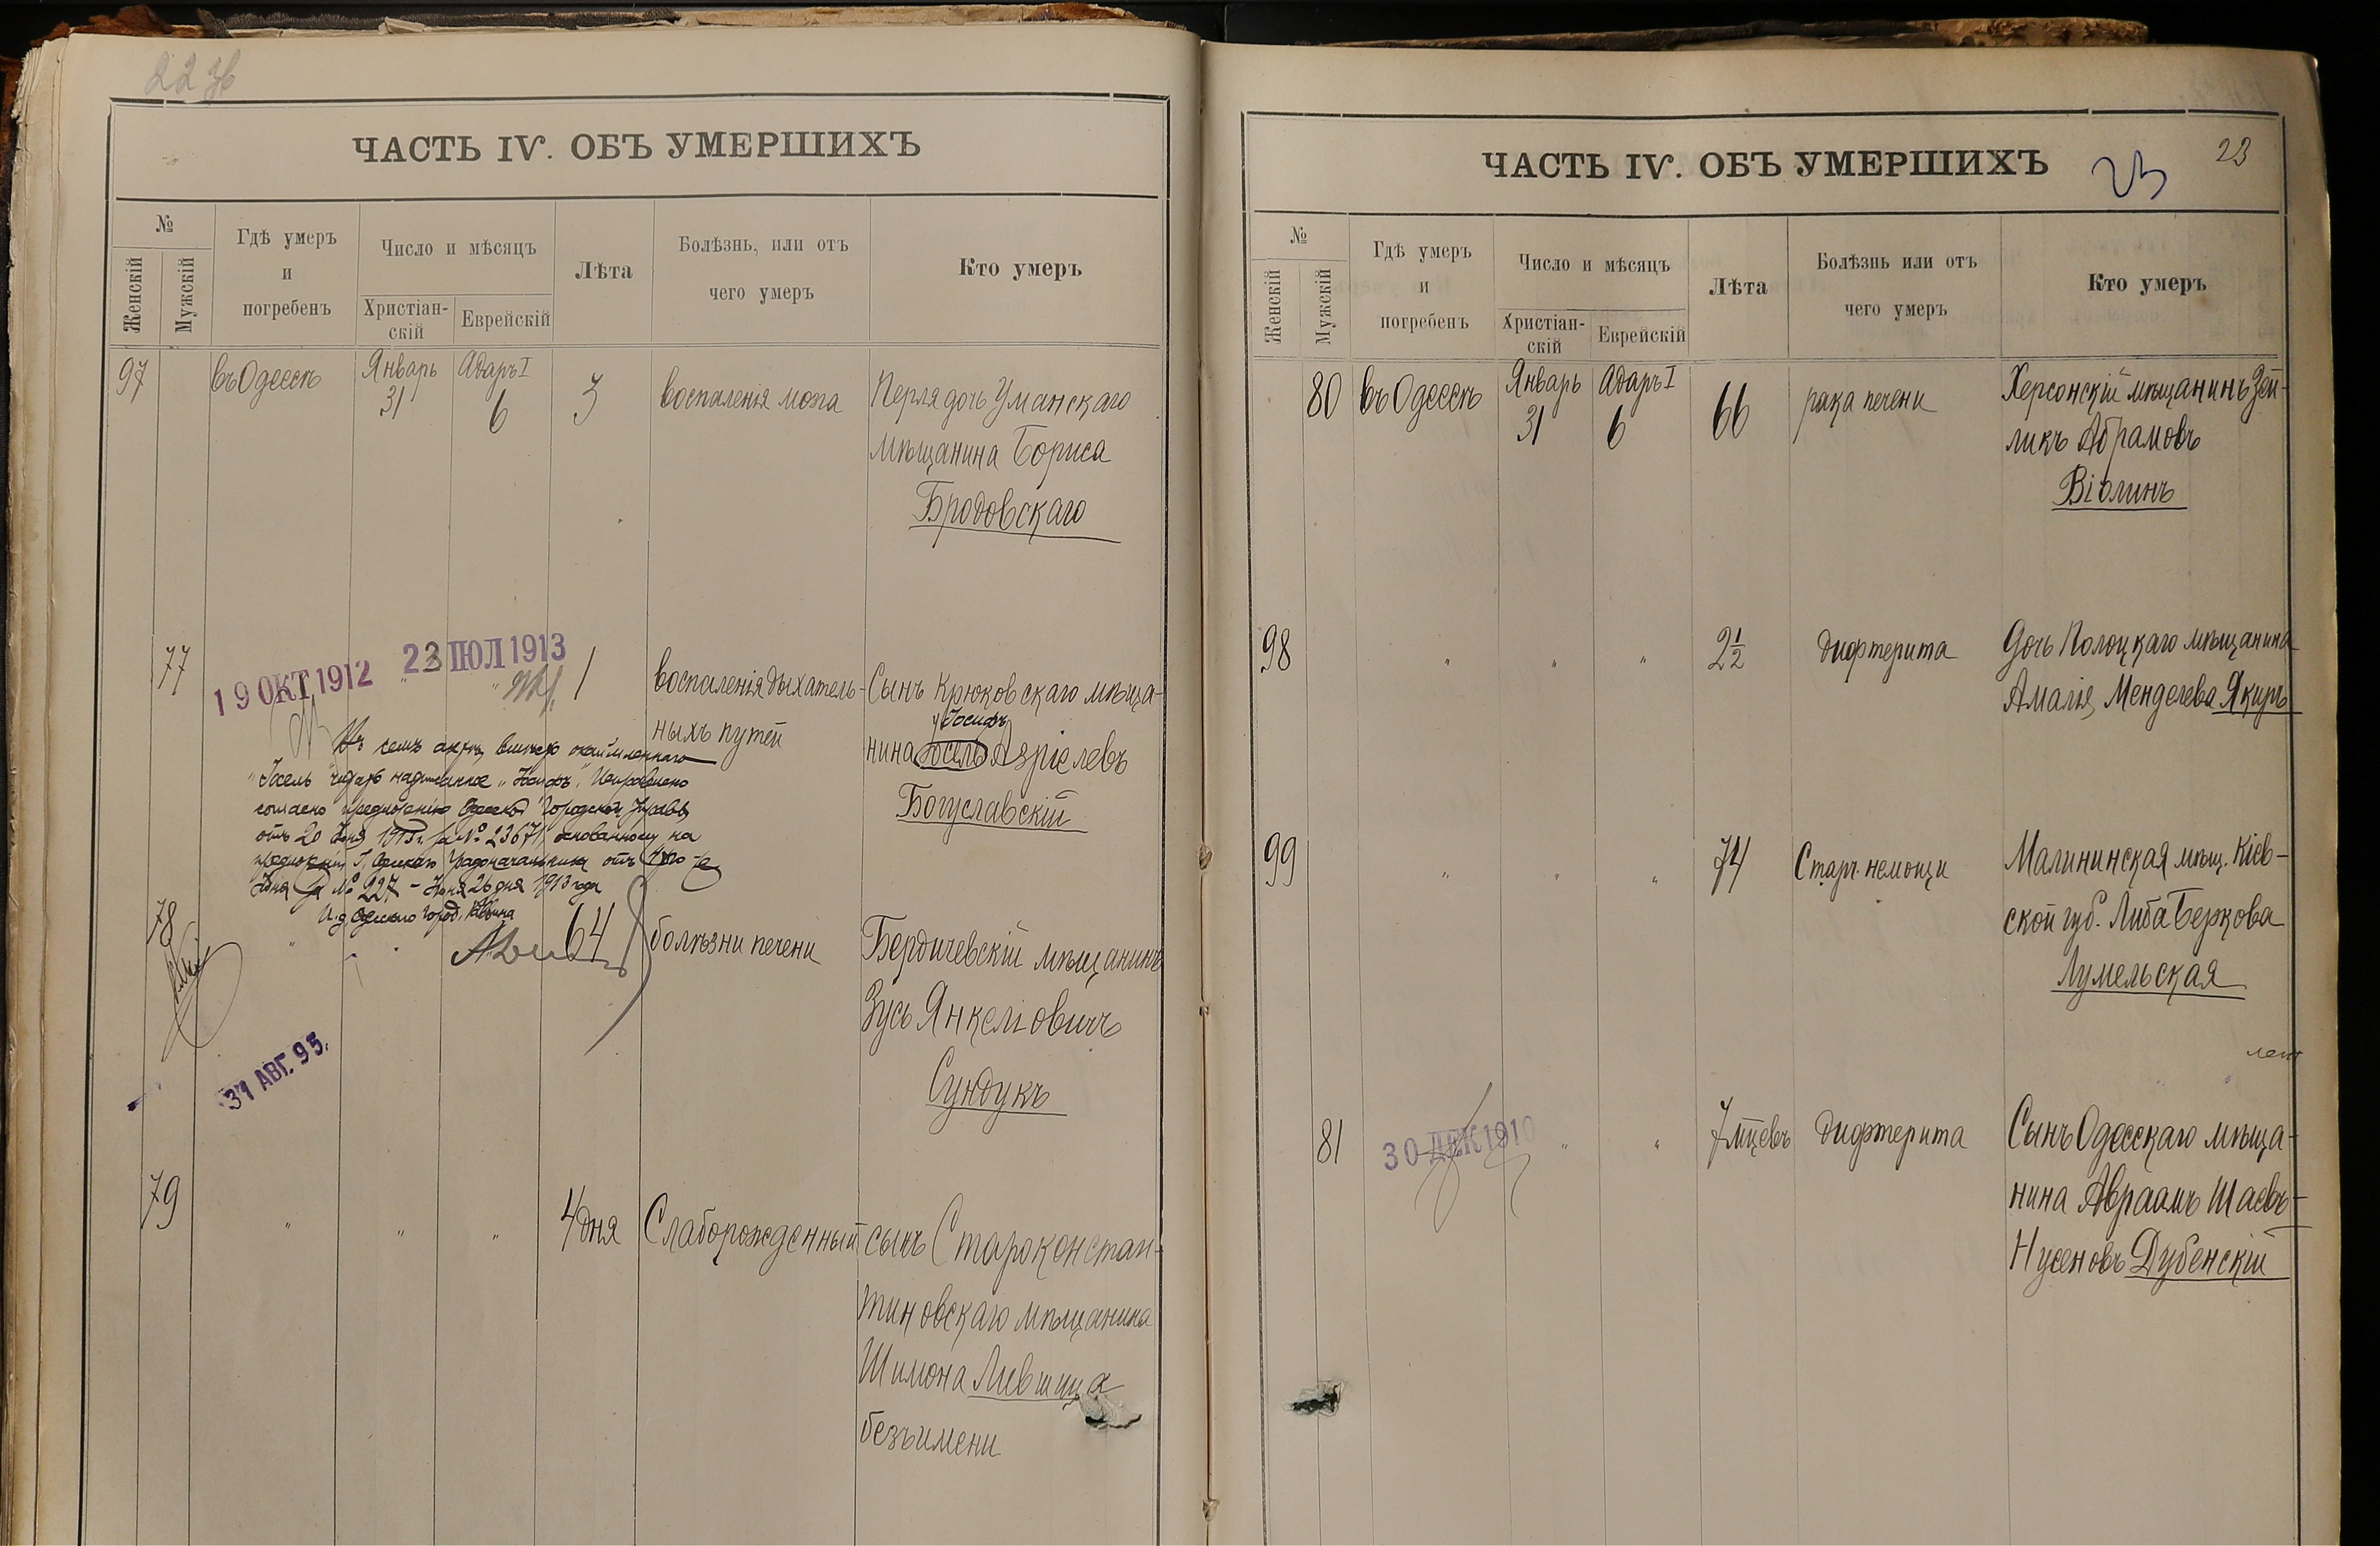 ЧАСТЬ IV. ОБЪ УМЕРШИХЪ
№
Женскій
Мужскій
Гдѣ умеръ
и
погребенъ
Число и мѣсяцъ
Христіан-
скій
Еврейскій
Лѣта
Болѣзнь, или отъ
чего умеръ
Кто умеръ
97 въ Одессѣ Январь 31 Адаръ I 6 3 воспаленія мозга Перля дочь Уманскаго
мѣщанина Бориса
Бродовскаго
77 19 ОКТ 1912 " 23 ІЮЛ 1913 " 1 воспаленія дыхатель- Сынъ Крюковскаго мѣща-
ныхъ путей
Іосифъ
нина Іосель Азріелевъ
Богуславскій
Въ семъ актѣ вмѣсто окаймленнаго
"Іосель" читать надписанное "Іосифъ". Исправлено
согласно предложенію Одесской Городской Управы
отъ 20 Іюня 1913 г. за № 23671 основанному на
предложеніи Г. Одесскаго Градоначальника отъ
Іюня за № 227 - Іюня 26 дня 1913 года
И. д. Одесскаго Город. Раввина
78 " " 64 болѣзни печени Бердичевскій мѣщанинъ
Зусь Янкеліовичъ
Сундукъ
31 АВГ. 95.
79 " " " 4 дня Слаборожденный сынъ Староконстан-
тиновскаго мѣщанина
Шимона Лившица
безъ имени
ЧАСТЬ IV. ОБЪ УМЕРШИХЪ
23
23
№
Женскій
Мужскій
Гдѣ умеръ
и
погребенъ
Число и мѣсяцъ
Христіан-
скій
Еврейскій
Лѣта
Болѣзнь или отъ
чего умеръ
Кто умеръ
80 въ Одессѣ Январь 31 Адаръ I 6 66 рака печени Херсонскій мѣщанинъ Зей-
ликъ Абрамовъ
Віолинъ
98 " " " 2½ дифтерита Дочь Полоцкаго мѣщанина
Амалія Менделева Якиръ
99 " " " 74 Старч. немощи Малининская мѣщ. Кіев-
ской губ. Либа Беркова
Лумельская
81 30 ДЕК 1910 " " 7 мѣцевъ дифтерита Сынъ Одесскаго мѣща-
нина Авраамъ Шаевъ-
Нусеновъ Дубенскій